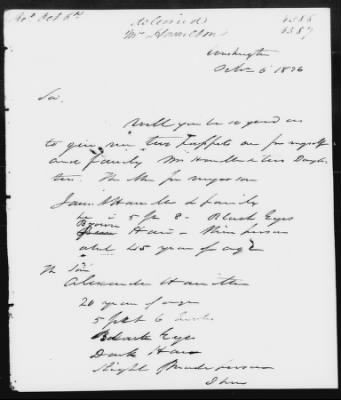 Received
Mr Hamilton
6386
6387
Washington
Octr 6 1836
Sir.
Will you be so good as
to give me two passports one for myself
and family Mrs Hamilton & two Daugh-
ters. The other for my son
James A Hamilton & family
he is 5 ft 8 - Black Eyes
Brown Hair - Thin person
abt 45 years of age
The Son
Alexander Hamilton
20 years of age
5 feet 6 Inches
Black Eyes
Dark Hair
Slight made person